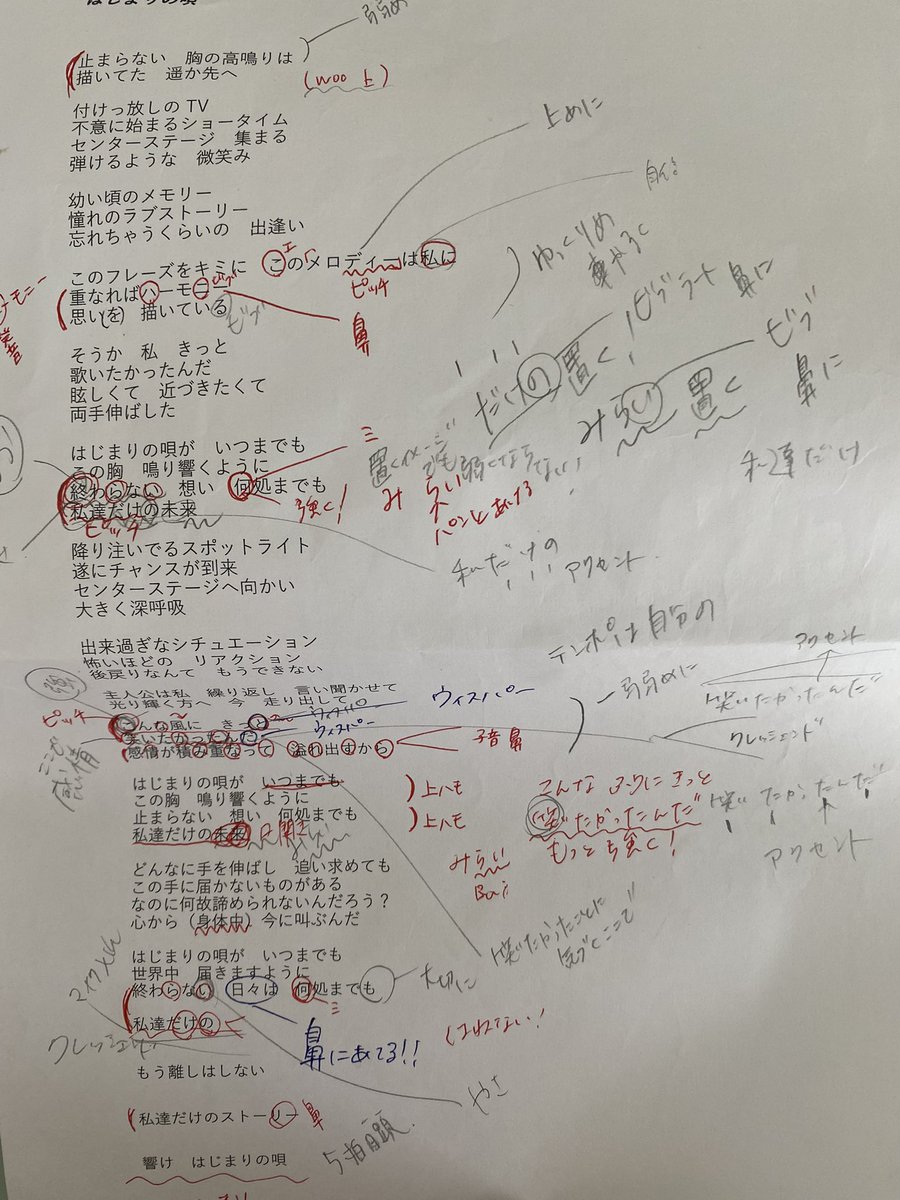 はじまりの唄
弱め
止まらない 胸の高鳴りは
描いてた 遥か先へ
(woo 上)
付けっ放しの TV
不意に始まるショータイム
センターステージ 集まる
弾けるような 微笑み
上めに
幼い頃のメモリー
憧れのラブストーリー
忘れちゃうくらいの 出逢い
このフレーズをキミに このメロディーは私に
ピッチ
重なればハーモニー
ビブ
思い(を) 描いている
ビブ
鼻
ゆっくりめ
そうか 私 きっと
歌いたかったんだ
眩しくて 近づきたくて
両手伸ばした
だけの置く!
ビブラート 鼻に
みらい 置く
ビブ
鼻に
はじまりの唄が いつまでも
この胸 鳴り響くように
終わらない 想い 何処までも
強く!
私達だけの未来
ピッチ
ミ
置くイメージ
でも弱くならない!
み らい
パンとあたる
私達だけ
私だけの
アクセント
降り注いでるスポットライト
遂にチャンスが到来
センターステージへ向かい
大きく深呼吸
出来過ぎなシチュエーション
怖いほどの リアクション
後戻りなんて もうできない
テンポは自分の
主人公は私 繰り返し 言い聞かせて
光り輝く方へ 今 走り出して
ウィスパー
弱めに
アクセント
笑いたかったんだ
クレッシェンド
強
ピッチ
こんな風に きっと
笑いたかったんだ
ウィスパー
感情が積み重なって 溢れ出すから
子音 鼻
ここで
感情
はじまりの唄が いつまでも
この胸 鳴り響くように
上ハモ
止まらない 想い 何処までも
上ハモ
私達だけの未来
こんなふうにきっと
笑いたかったんだ
もっとも強く!
笑いたかったんだ
アクセント
みらい
どんなに手を伸ばし 追い求めても
この手に届かないものがある
なのに何故諦められないんだろう?
心から(身体中)今に叫ぶんだ
笑いたかったことに
気づくここで
はじまりの唄が いつまでも
世界中 届きますように
終わらない 日々は 何処までも
ミ
大切に
私達だけの
クレッシェンド
鼻にあてる!!
はねない!
もう離しはしない
私達だけのストーリー
鼻
5拍目頭
響け はじまりの唄